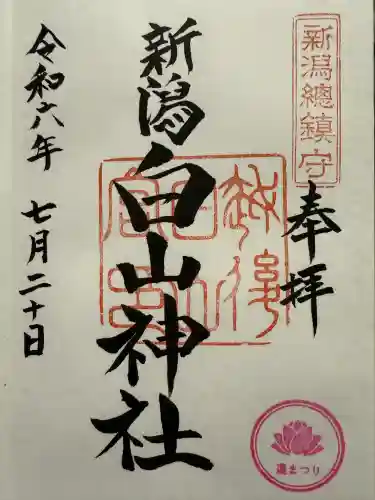 新潟總鎮守
奉拝
新潟
白山神社
令和六年 七月二十日
蓮まつり